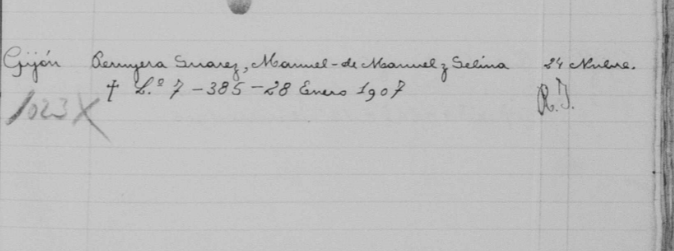 Gijón Peruyera Suarez, Manuel - de Manuel y Selina 24 Nvbre.
† L.º 7 - 385 - 28 Enero 1907 R. I.
1023 X